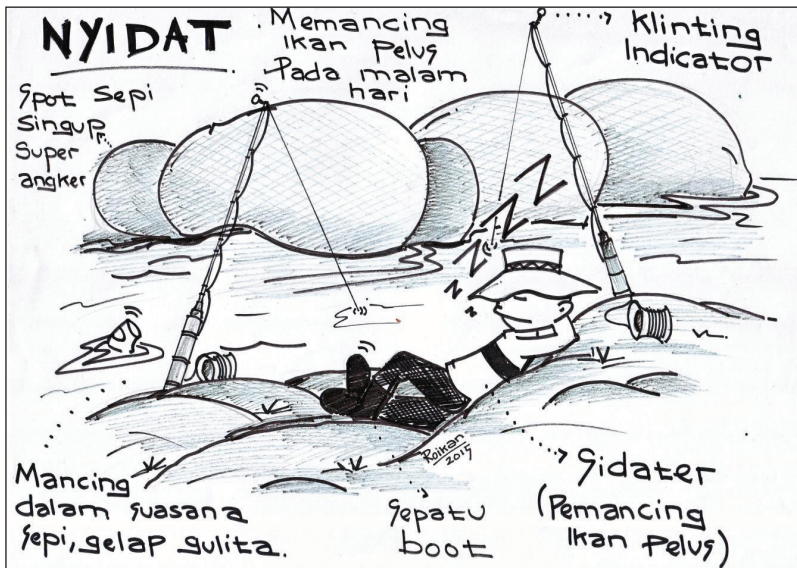 NYIDAT
Memancing
Ikan Pelus
Pada malam
hari
Klinting
Indicator
Spot Sepi
Singup
Super
angker
Z Z Z Z Z Z
Roikan
2015
Mancing
dalam suasana
sepi, gelap gulita.
Sepatu
boot
Sidater
(Pemancing
Ikan Pelus)